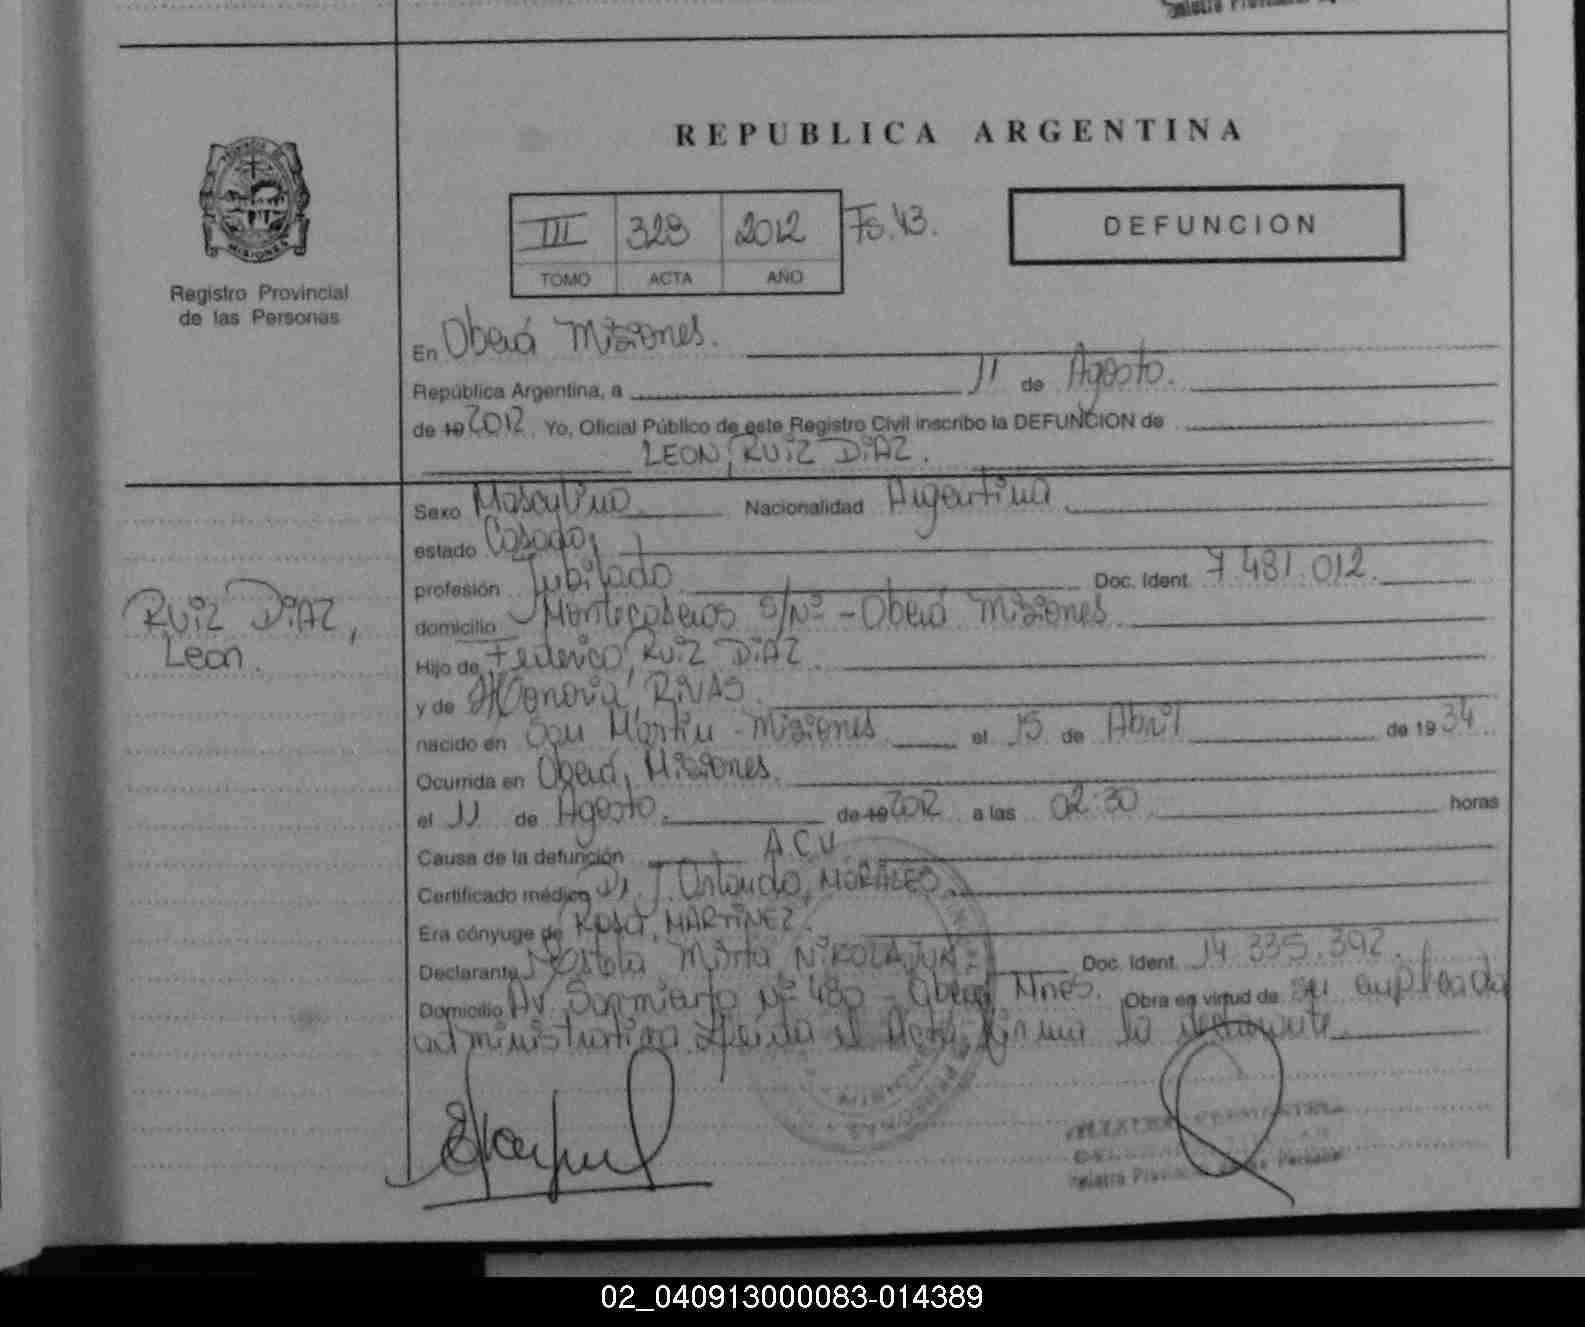 REPUBLICA ARGENTINA
MISIONES
Registro Provincial
de las Personas
III 328 2012 Fs. 43.
TOMO ACTA AÑO
DEFUNCION
En Oberá Misiones.
República Argentina, a 11 de Agosto.
de 19 2012. Yo, Oficial Público de este Registro Civil inscribo la DEFUNCION de
LEON, RUIZ DIAZ.
RUIZ DIAZ,
Leon.
Sexo Masculino. Nacionalidad Argentina.
estado Casado,
profesión Jubilado Doc. Ident. 7.481.012.
domicilio Montecaseros S/Nº - Oberá Misiones.
Hijo de Federico, RUIZ DIAZ.
y de Honoria, RIVAS.
nacido en San Martin - Misiones el 15 de Abril de 1934.
Ocurrida en Oberá, Misiones.
el 11 de Agosto. de 19 2012 a las 02:30 horas
Causa de la defunción A.C.V.
Certificado médico Dr. J. Orlando, MORALES.
Era cónyuge de Rosa, MARTINEZ.
Declarante Mirta Doc. Ident. 14.335.392.
Domicilio AV. Sarmiento Nº 480 - Oberá Mnes. Obra en virtud de su empleada
administrativa el Acta, firma la
02_040913000083-014389